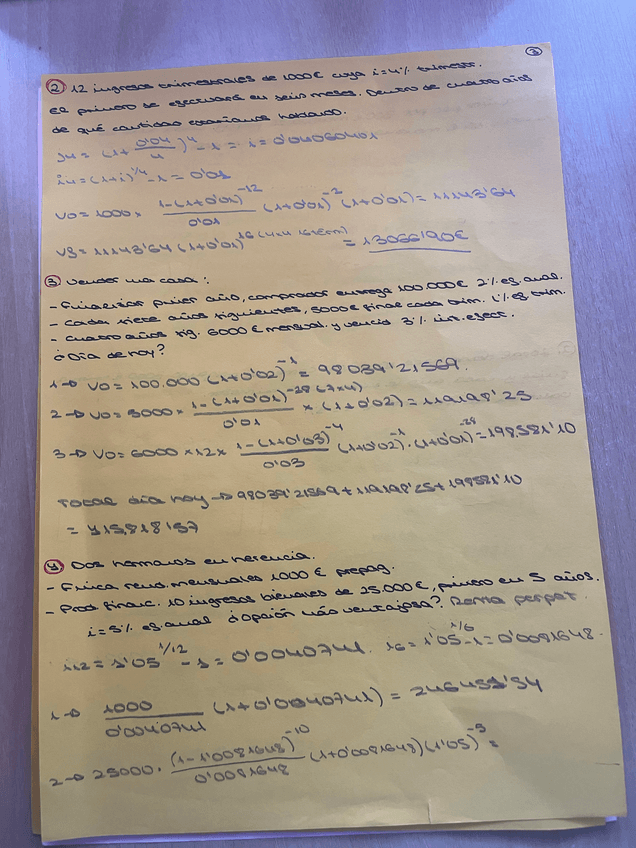 ③
② 12 ingresos trimestrales de 1000€ cuya i=4% trimestr.
el primero se efectuará en seis meses. Dentro de cuatro años
de qué cantidad estaríamos hablando.
J4 = (1+ 0'04/4)^4 -1 = i = 0'04060401
i4=(1+i)^1/4 -1 = 0'01
V0=1000× 1-(1+0'01)^-12 / 0'01 (1+0'01)^-2 (1+0'01)=11143'64
Vf=11143'64 (1+0'01)^16 (4×4 16 trim) = 13066'90€
③ Vender una casa:
- Finalizar primer año, comprador entrega 100.000€ 2% ef. anual.
- Cada siete años siguientes, 5000€ final cada trim. 1% ef. trim.
- Cuatro años sig. 6000€ mensual. y vencid 3% int. efect.
¿Día de hoy?
1→ V0=100.000 (1+0'02)^-1 = 98039'21569.
2→ V0=5000× 1-(1+0'01)^-28 (7×4) / 0'01 × (1+0'02)=119198'25
3→ V0=6000×12× 1-(1+0'03)^-4 / 0'03 (1+0'02)^-1·(1+0'01)^-28=198.581'10
Total día hoy→98039'21569+119198'25+198581'10
= 415.818'57
④ Dos hermanos en herencia.
- Finca rend. mensuales 1000€ prepag.
- Prod. financ. 10 ingresos bienales de 25.000€, primero en 5 años.
i=5% ef. anual ¿opción más ventajosa? Renta perpet.
i12=1'05^1/12 -1=0'0040741. i6=1'05^1/6-1=0'0081648.
1→ 1000/0'0040741 (1+0'0040741) = 246453'54
2→ 25000· (1-1'0081648)^-10 / 0'0081648 (1+0'0081648)(1'05)^-5=